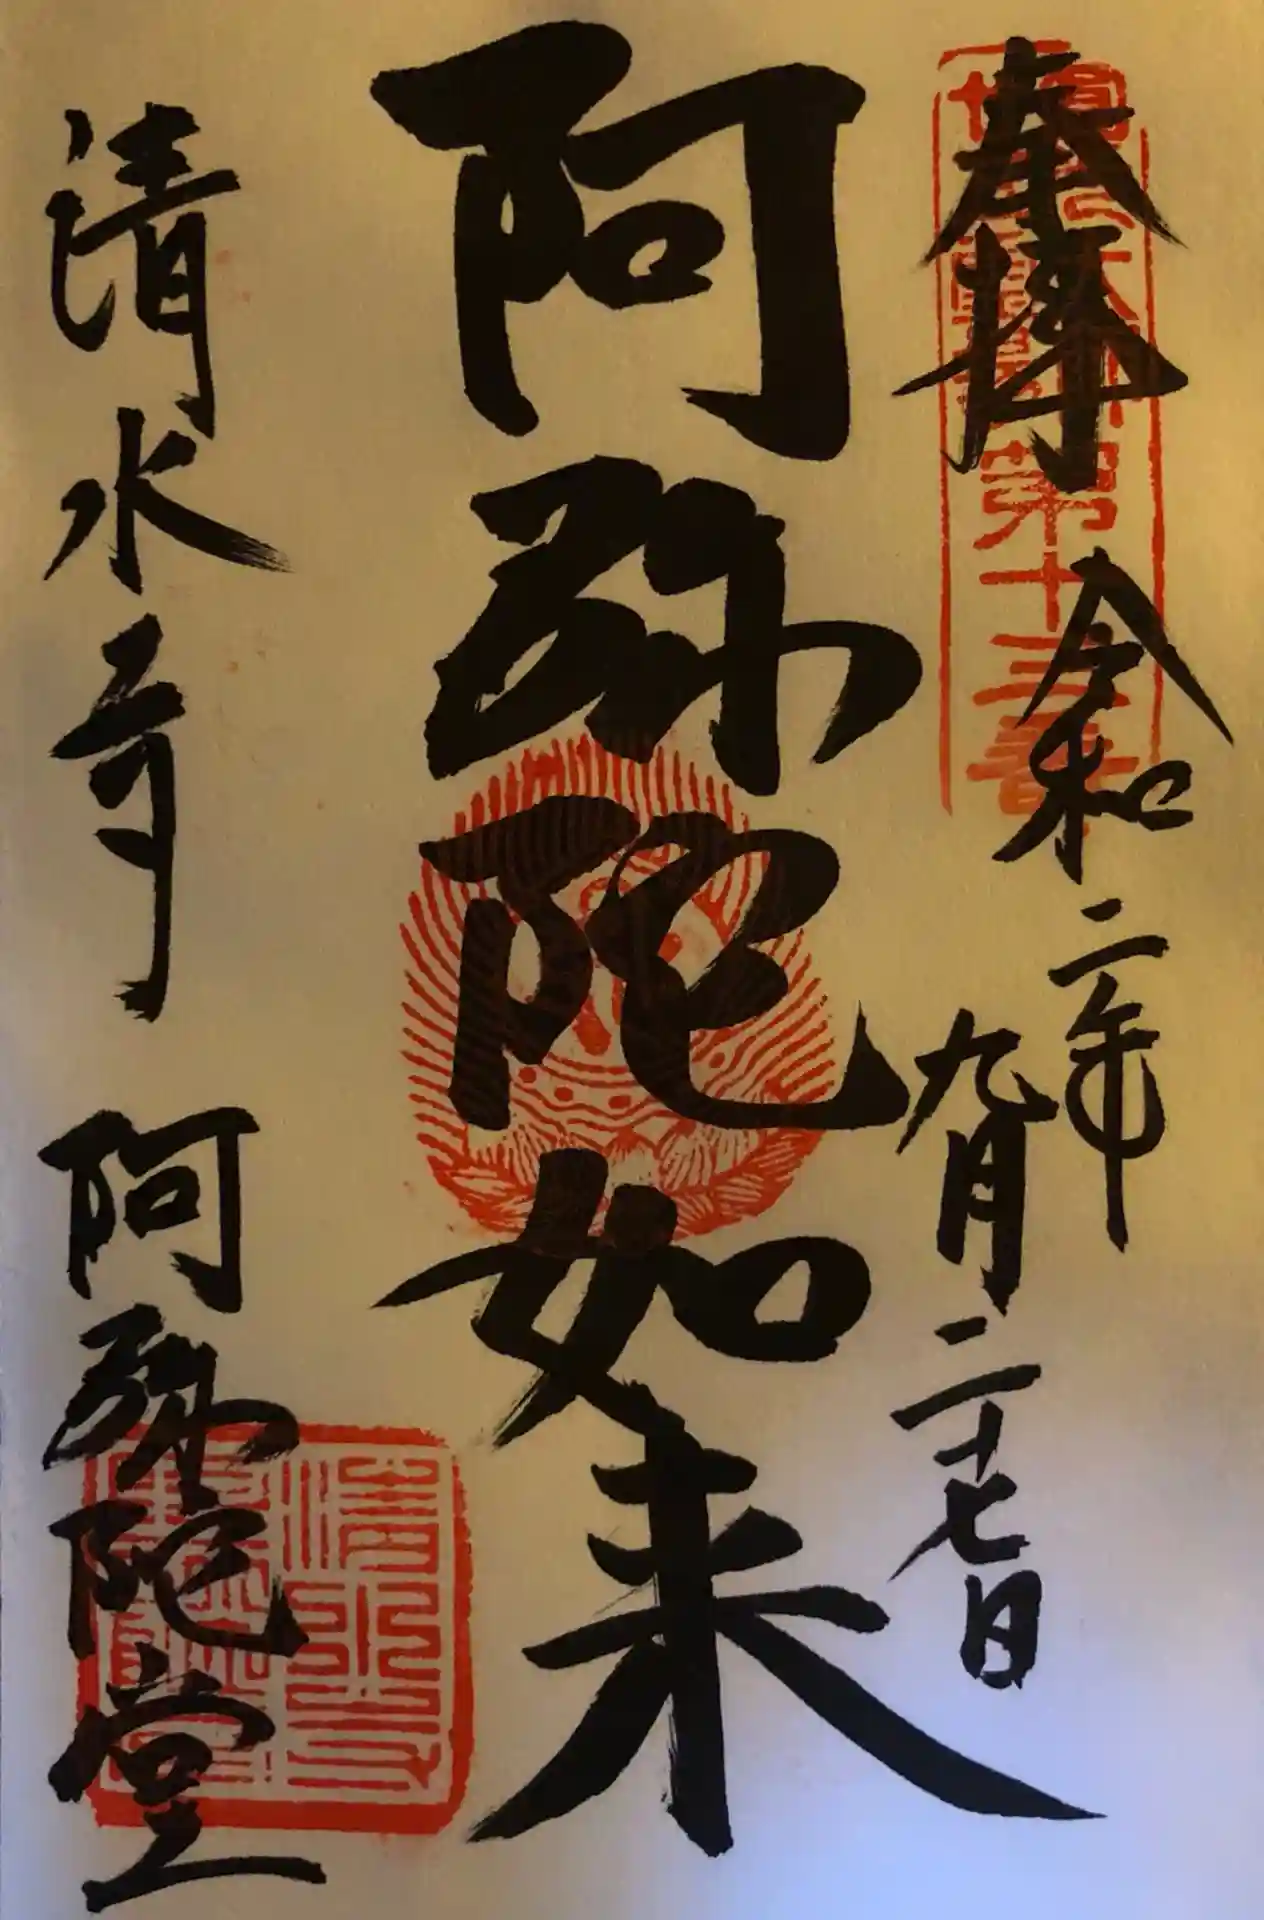 奉拝
令和二年
九月二十七日
阿弥陀如来
清水寺 阿弥陀堂